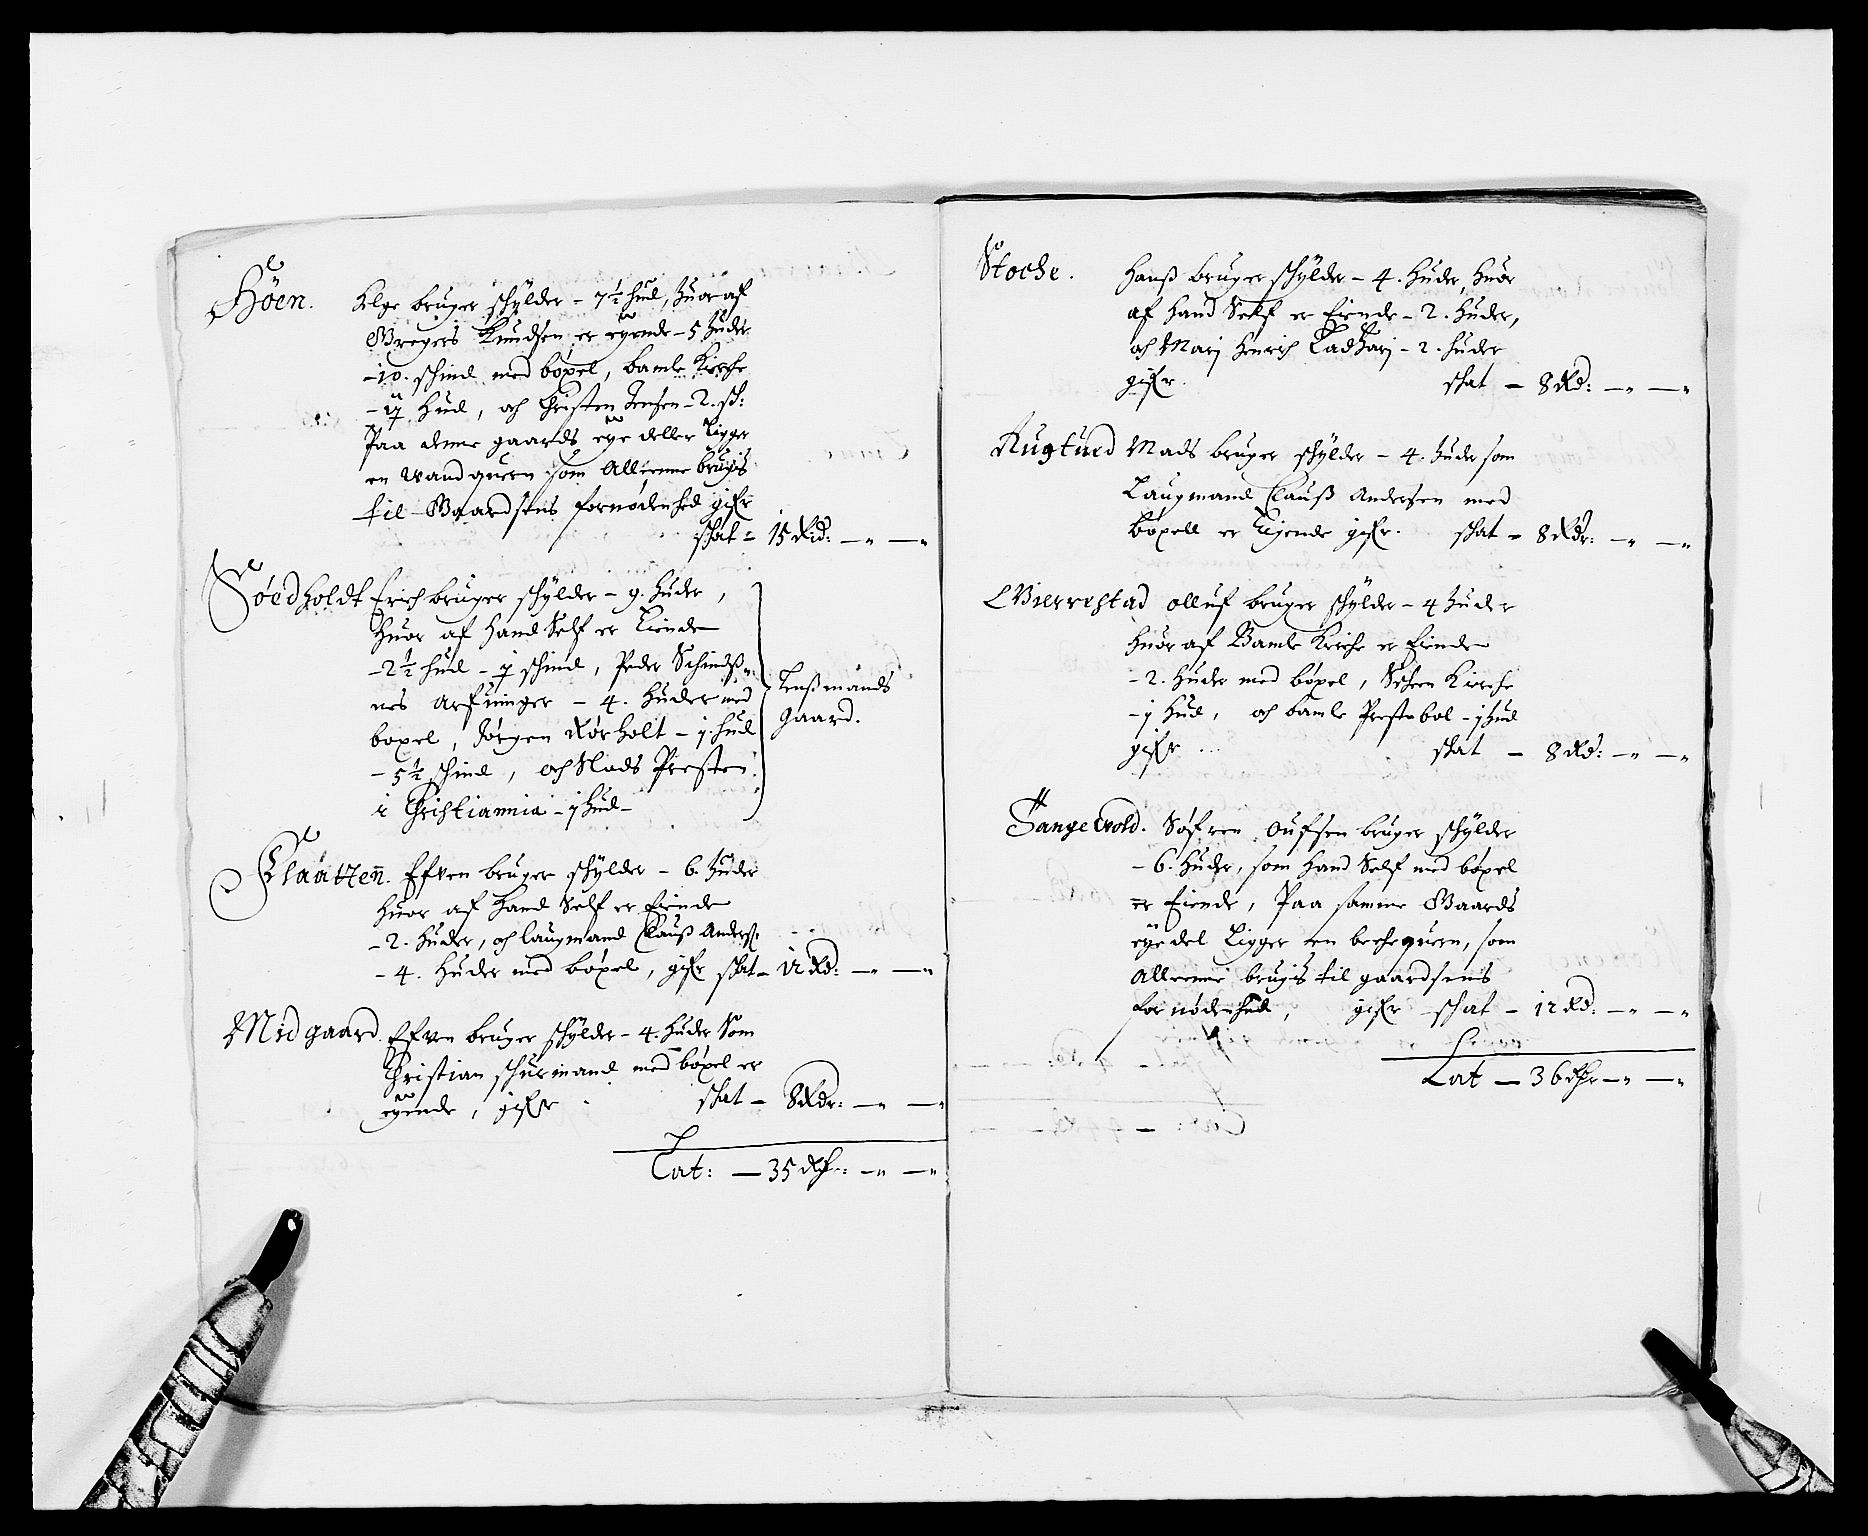 Höen. Helge bruger schÿlder - 7½ hud, huoraf
Gregers Knudsen er eÿende - 5 huder
- 10. schind med böxel, bamle Kirche
hud, och Christen Jensen - 2. sch:
Paa denne gaards eÿedeller Ligger
en Wandquern som Alleenne brugis
til Gaardsens fornödenhed gifr
schat - 15 Rd: - " - "
Söedholdt Erich bruger schÿlder - 9. huder,
huor af hand Self er Eiende
- 2½ hud - schind, Peder
nes Arfuinger - 4. huder med
boxel, Jörgen Rörholt - j. hud
- 5½ schind, och Mads Presten
i Christiannia - j hud -
Lenßmands
Gaard.
Klaatten. Efven bruger schÿlder - 6. huder
huor af hand Self er Eiende
- 2. huder, och laugmand Clauß Anders:
- 4. huder med böxel, gifr schat - 12 Rd: - " - "
Midgaard. Efven bruger schÿlder - 4. huder Som
Christian schürmand med böxel er
eÿende, gifr schat - 8 Rdr: - " - "
Lat: - 35 Rdr: - " - "
Stoche. Hanß bruger schÿlder - 4. huder, huor
af hand Self er Eiende - 2. huder,
och Marj Henrich - 2. huder
gifr. schat - 8 Rd: - " - "
Rugtued Mads bruger schÿlder - 4. huder som
Laugmand Clauß Andersen med
böxell er Eiende gifr. schat - 8 Rdr: - " - "
Wierrestad olluf bruger schÿlder - 4 huder
huoraf Bamle Kirche er Eiende
- 2. huder med böxel, Scheen Kirche
- j hud, och bamle Prestebol - j hud
gifr schat - 8 Rd: - " - "
Tangevold. Söfren Oufsen bruger schÿlder
- 6. huder, som hand Self med böxel
er Eiende, Paa samme Gaards
eÿedel Ligger en bechequern, som
Alleenne brugis til gaardsens
fornödenhed, gifr schat - 12 Rd: - " - "
Lat - 36 Rdr - " - "